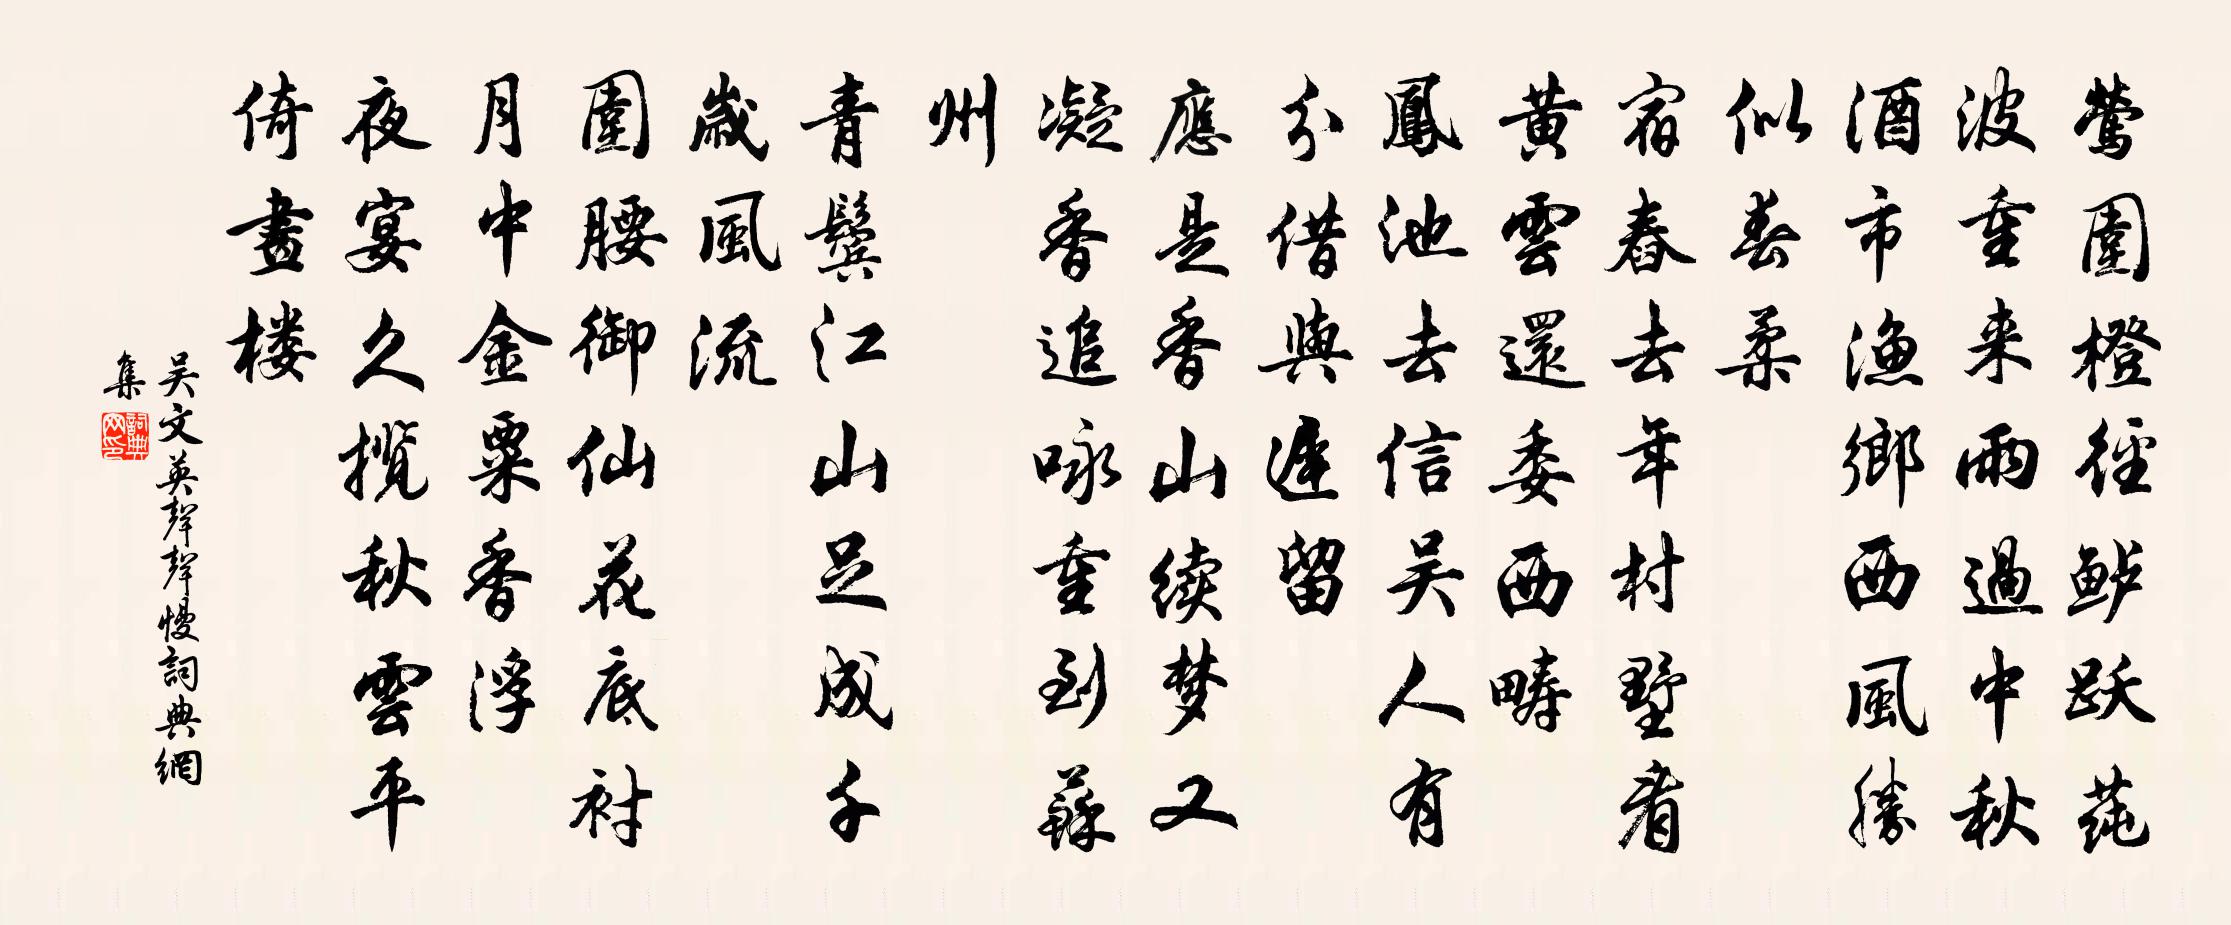 鶯圍橙徑鲈跃莼
波重来雨過中秋
酒市渔鄉西風勝
似春柔
宿舂去年村墅看
黄雲還委西疇
鳳池去信吴人有
分借與遲留
應是香山续梦又
凝香追咏重到蘇
州
青鬓江山足成千
歲風流
圍腰御仙花底衬
月中金粟香浮
夜宴久揽秋雲平
倚畫楼
吴文英聲聲慢詞典網
集
詞典
网印